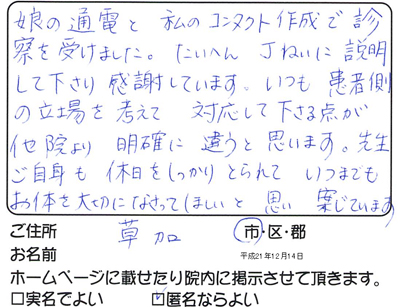 娘の通電と 私のコンタクト作成で診
察を受けました。たいへん 丁ねいに説明
して下さり 感謝しています。いつも 患者側
の立場を考えて 対応して下さる点が
他院より 明確に 違うと思います。先生
ご自身も 休日をしっかりとられて いつまでも
お体を大切になさってほしいと 思い 案じています
ご住所 草加 市・区・郡
お名前 平成21年12月14日
ホームページに載せたり院内に掲示させて頂きます。
□実名でよい ☑匿名ならよい